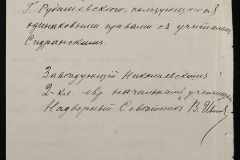 Г. Рудашевского, пользующимся
одинаковыми правами съ учителемъ
Сидранскимъ.
Завѣдующій Никольскимъ
2-кл. евр. начальнымъ училищемъ
Надворный Совѣтникъ В.